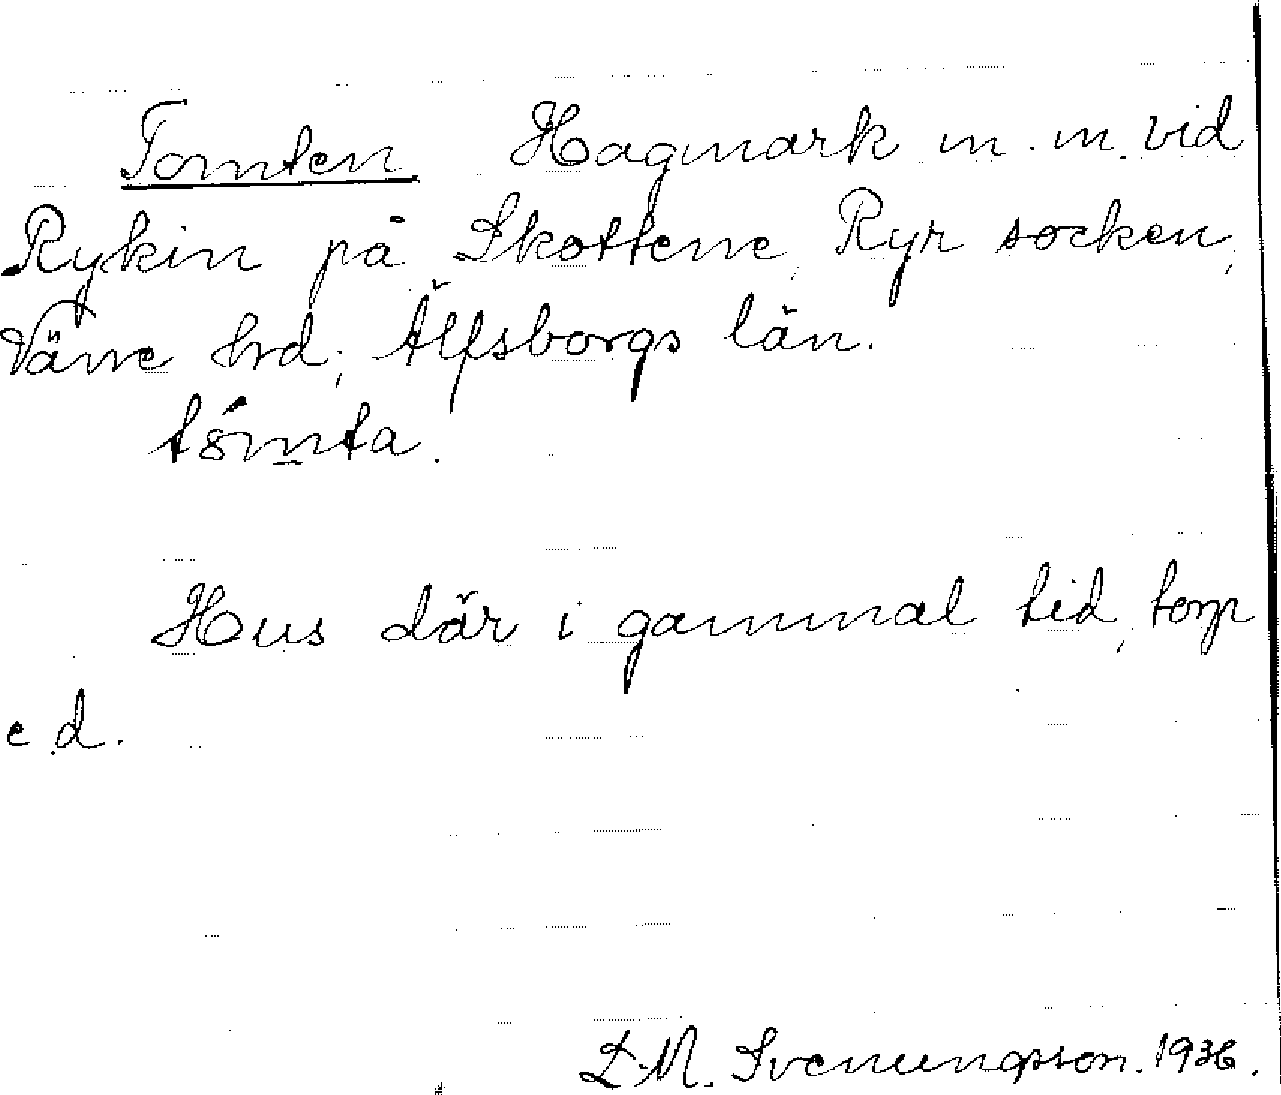 Tomten Hagmark m. m. vid
Rykin på Skottene, Ryr socken,
Väne hrd, Älfsborgs län.
tómta.
Hus där i gammal tid, torp
e d.
L. M. Svenungsson. 1936.